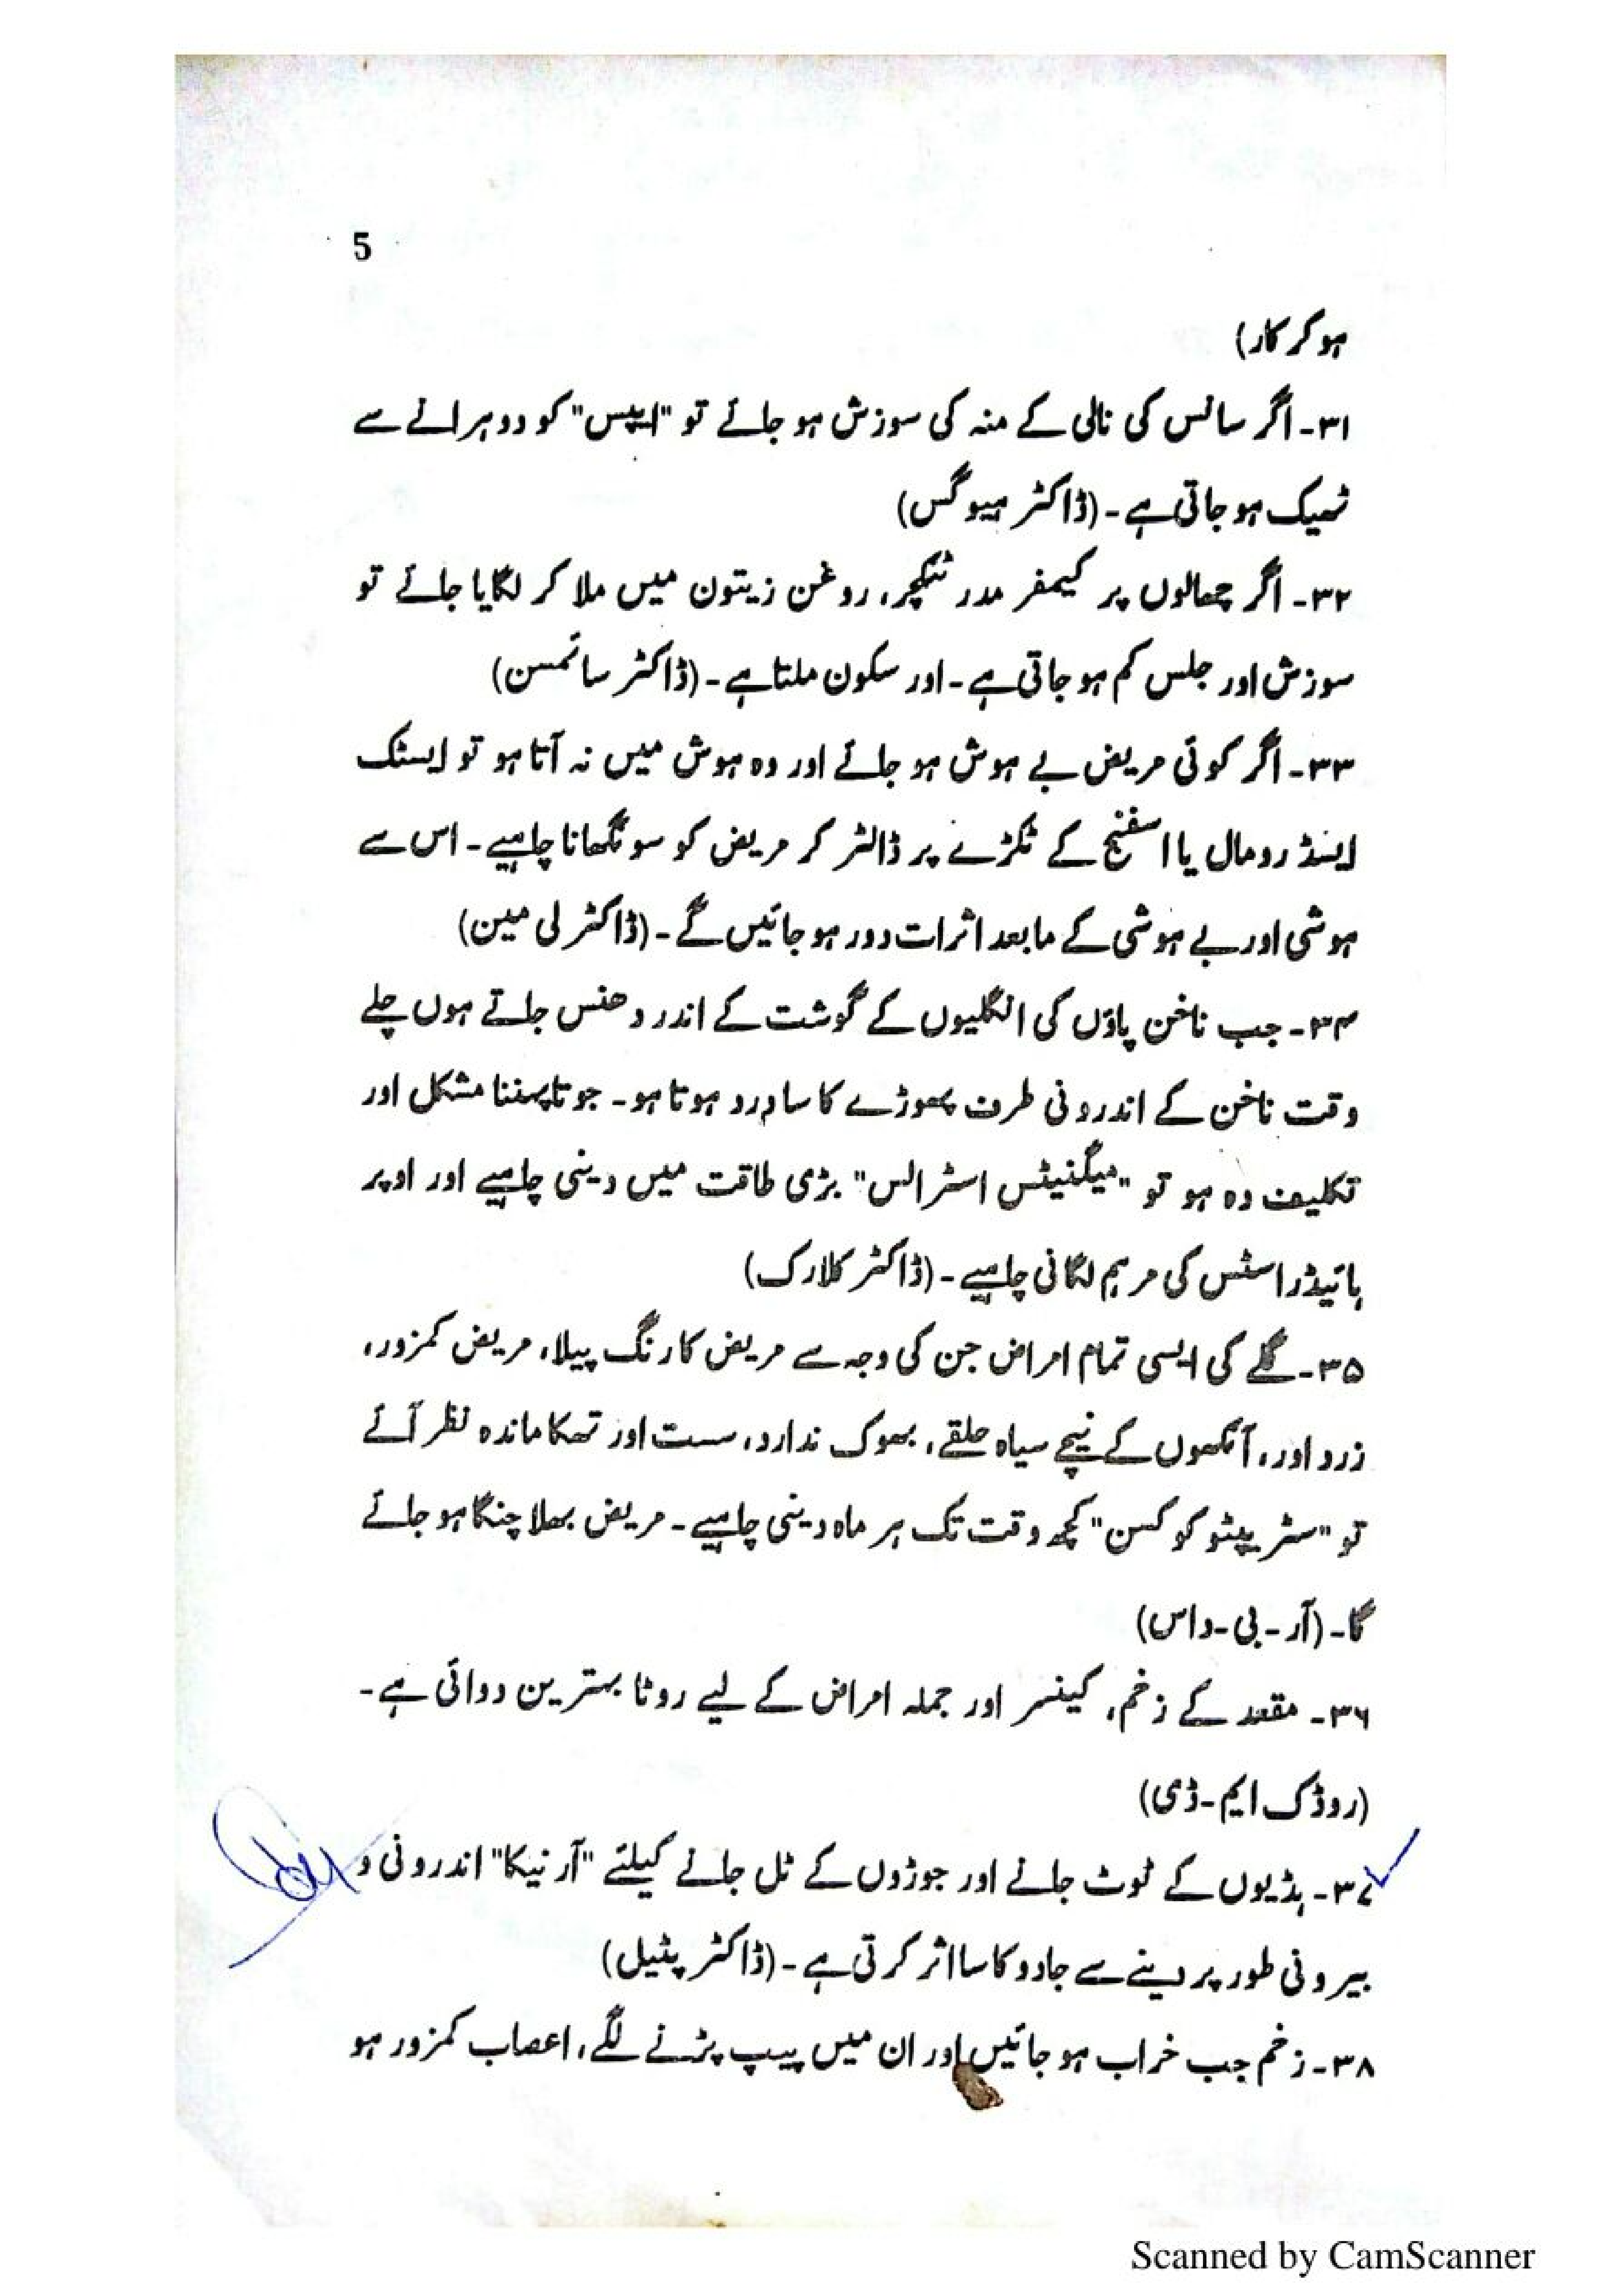 5
ہوکر کار)
۳۱۔ اگر سانس کی نالی کے منہ کی سوزش ہو جائے تو "ایپس" کو دوہرانے سے
ٹھیک ہو جاتی ہے۔ (ڈاکٹر ہیوگس)
۳۲۔ اگر چھالوں پر کیمفر مدر ٹنکچر، روغن زیتون میں ملا کر لگایا جائے تو
سوزش اور جلس کم ہو جاتی ہے۔ اور سکون ملتا ہے۔ (ڈاکٹر سائمسن)
۳۳۔ اگر کوئی مریض بے ہوش ہو جائے اور وہ ہوش میں نہ آتا ہو تو ایسٹک
ایسڈ رومال یا اسفنج کے ٹکڑے پر ڈالٹر کر مریض کو سونگھانا چاہیے۔ اس سے
ہوشی اور بے ہوشی کے مابعد اثرات دور ہو جائیں گے۔ (ڈاکٹر لی مین)
۳۴۔ جب ناخن پاؤں کی انگلیوں کے گوشت کے اندر دھنس جاتے ہوں چلے
وقت ناخن کے اندرونی طرف پھوڑے کا سا درد ہوتا ہو۔ جوتا پہننا مشکل اور
تکلیف دہ ہو تو "میگنیٹس اسٹرالس" بڑی طاقت میں دینی چاہیے اور اوپر
ہائیڈراسٹس کی مرہم لگانی چاہیے۔ (ڈاکٹر کلارک)
۳۵۔ گلے کی ایسی تمام امراض جن کی وجہ سے مریض کا رنگ پیلا، مریض کمزور،
زرد اور، آنکھوں کے نیچے سیاہ حلقے، بھوک ندارد، سست اور تھکا ماندہ نظر آئے
تو "سٹریپٹو کوکسن" کچھ وقت تک ہر ماہ دینی چاہیے۔ مریض بھلا چنگا ہو جائے
گا۔ (آر۔بی۔داس)
۳۶۔ مقعد کے زخم، کینسر اور جملہ امراض کے لیے روٹا بہترین دوائی ہے۔
(روڈک ایم۔ڈی)
۳۷۔ ہڈیوں کے ٹوٹ جانے اور جوڑوں کے ٹل جانے کیلئے "آرنیکا" اندرونی و
بیرونی طور پر دینے سے جادو کا سا اثر کرتی ہے۔ (ڈاکٹر پٹیل)
۳۸۔ زخم جب خراب ہو جائیں اور ان میں پیپ پڑنے لگے، اعصاب کمزور ہو
Scanned by CamScanner